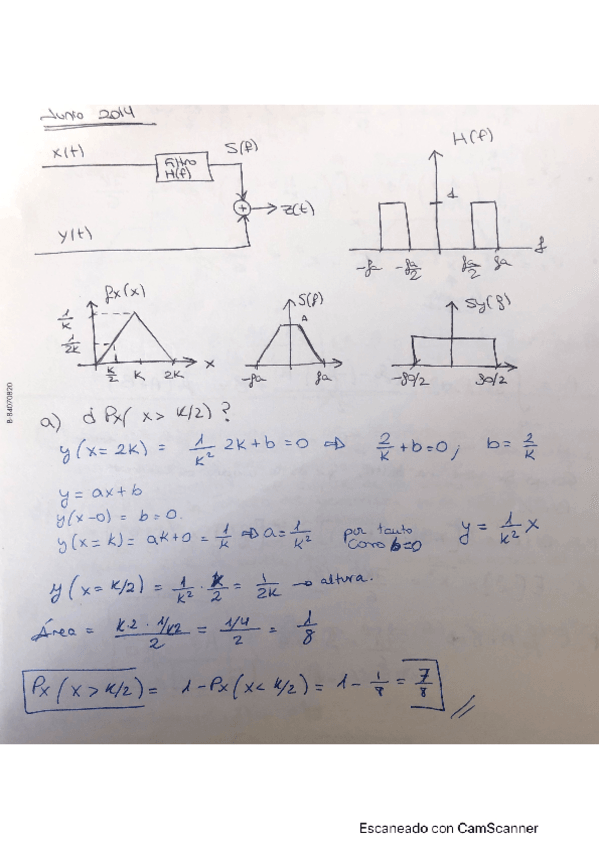 Junio 2014
x(t)
Filtro H(f)
S(f)
+
z(t)
y(t)
H(f)
1
-fa
-fa/2
fa/2
fa
f
fx(x)
1/k
1/2k
k/2
k
2k
x
S(f)
A
-fa
fa
Sy(f)
-fa/2
fa/2
a) ¿ Px( x > k/2) ?
y(x=2k) = 1/k² 2k+b = 0 ⇒ 2/k + b = 0 ; b = 2/k
y = ax+b
y(x-0) = b = 0.
y(x=k) = ak+0 = 1/k ⇒ a = 1/k² por tanto como b=0 y = 1/k² x
y(x=k/2) = 1/k² · k/2 = 1/2k → altura.
Área = k·2 · 1/k2 / 2 = 1/4 / 2 = 1/8
Px(x > k/2) = 1-Px(x< k/2) = 1 - 1/8 = 7/8 //
B-84070820
Escaneado con CamScanner